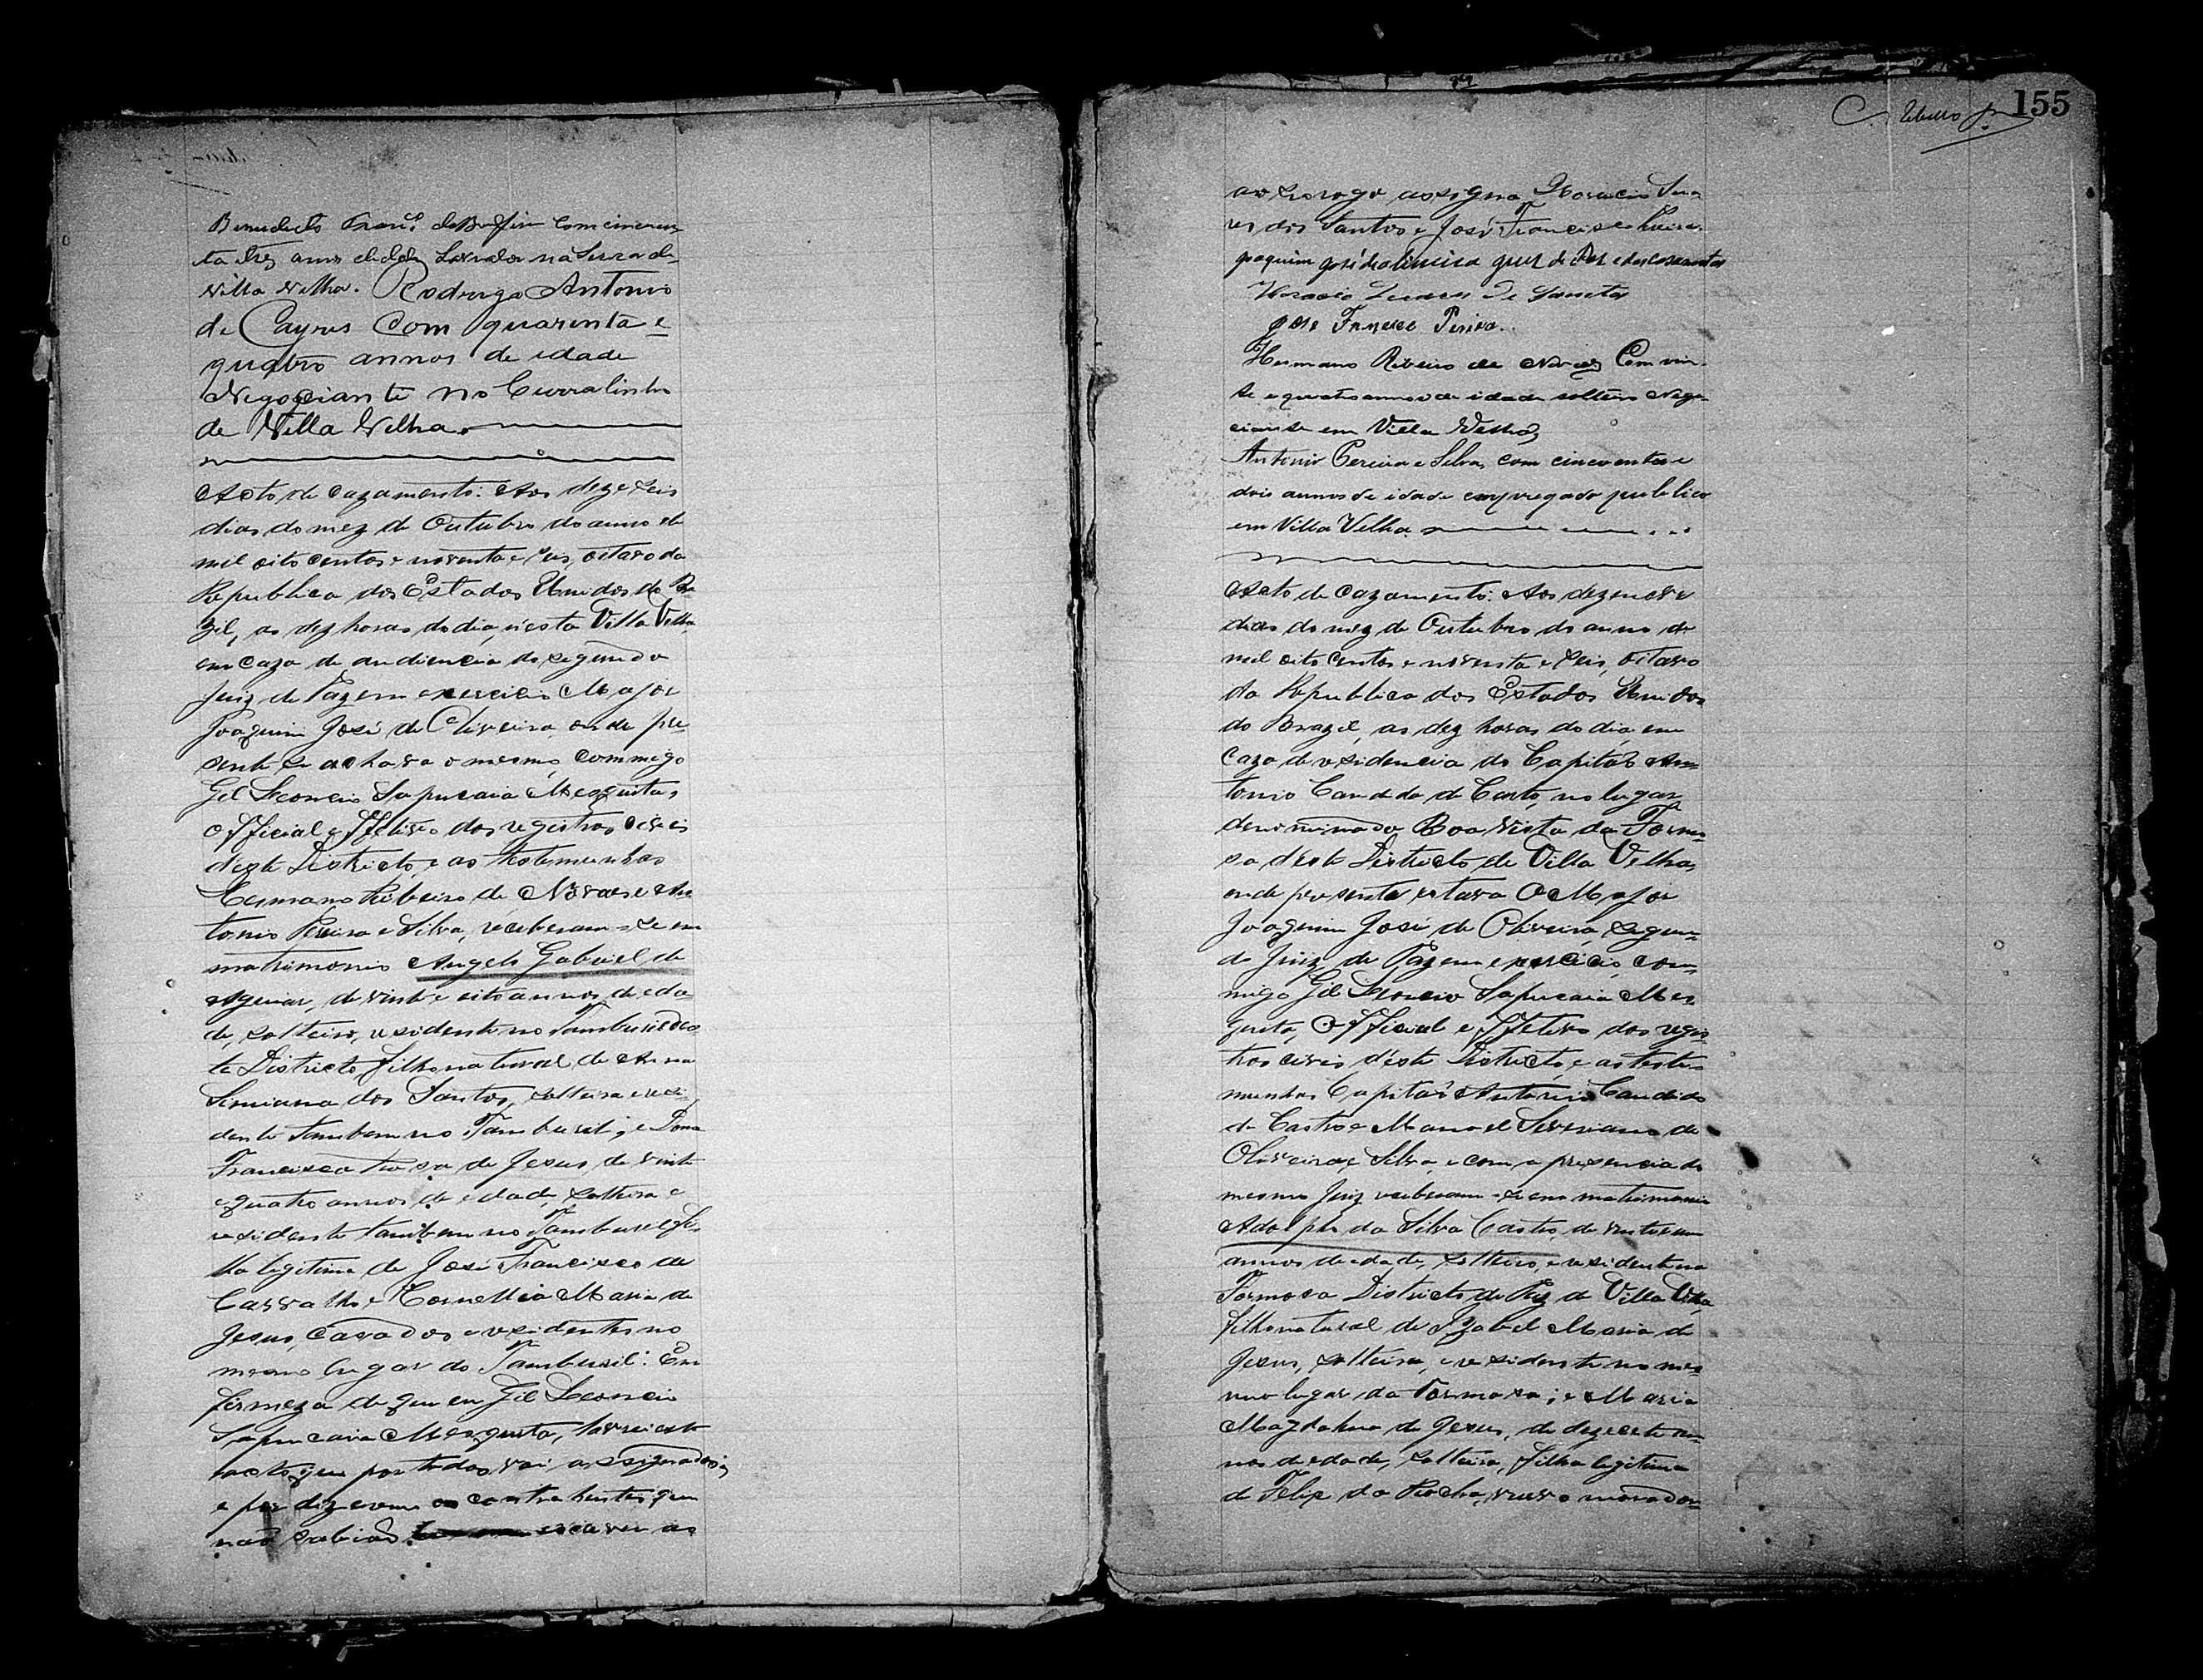 Benedicto Franc.º do Bomfim com cincoen
ta tres annos de idade Lavrador na Serra de
Villa Velha. Rodrigo Antonio
de Cayres com quarenta e
quatro annos de idade
Negociante no Curralinho
de Villa Velha.
Acto de cazamento. Aos dezeseis
dias do mez de Outubro do anno de
mil oito centos e noventa e seis, oitavo da
Republica dos Estados Unidos do Bra
zil, as dez horas do dia, n'esta Villa Velha,
em caza de audiencia do segundo
Juiz de Paz em exercicio Major
Joaquim José de Oliveira, onde pre
sente se achava o mesmo, commigo
Gil Leoncio Sapucaia Mesquita,
Official effetivo dos registros civeis
deste Districto, e as testemunhas
Hermano Ribeiro de Novaes e An
tonio Pereira e Silva, receberam-se em
matrimonio Angelo Gabriel de
Aguiar, de vinte e oito annos de eda
de, solteiro, residente no Tamburil des
te Districto, filho natural de Anna
dos Santos, solteira e resi
dente tambem no Tamburil; e Dona
Francisca Rosa de Jesus, de vinte
e quatro annos de edade, solteira e
residente tambem no Tamburil, fi
lha legitima de José Francisco de
Carvalho e Cornellia Maria de
Jesus, casados e residentes no
mesmo lugar do Tamburil. Em
firmeza do que eu Gil Leoncio
Sapucaia Mesquita, lavrei este
acto, que por todos vai assignado;
e por dizerem os contrahentes que
não sabião escrever as
155
ao seo rogo assigna Horacio Soa
res dos Santos e José Francisco Pereira.
Joaquim José de oliveira juiz de Paz e dos casamentos
Horacio Soares de Santos
José Francisco Pereira.
Hermano Ribeiro de Novaes Com vin
te e quatro annos de idade solteiro Nego
ciante em Villa Velha
Antonio Pereira e Silva, com cincoenta e
dois annos de idade empregado publico
em Villa Velha.
Acto de cazamento. Aos dezenove
dias do mez de Outubro do anno de
mil oito centos e noventa e seis, oitavo
da Republica dos Estados Unidos
do Brazil, as dez horas do dia, em
caza de residencia do Capitão An
tonio Candido de Castro, no lugar
denominado Boa Vista da Formo
sa deste Districto de Villa Velha,
onde presente estava o Major
Joaquim José de Oliveira, segun
do Juiz de Paz em exercicio, com
migo Gil Leoncio Sapucaia Mes
quita, Official effetivo dos regis
tros civis d'este Districto, e as teste
munhas Capitão Antonio Candido
de Castro e Manoel Severiano de
Oliveira e Silva, e com a presencia do
mesmo Juiz receberam-se em matrimonio
Adolpho da Silva Castro, de vinte e um
annos de edade, solteiro, e residente na
Formosa Districto de Paz de Villa Velha
filho natural de Izabel Maria de
Jesus, solteira, e residente no mes
mo lugar da Formosa; e Maria
Magdalena de Jesus, de dezesete an
nos de edade, solteira, filha legitima
de Felip da Rocha, viuvo morador